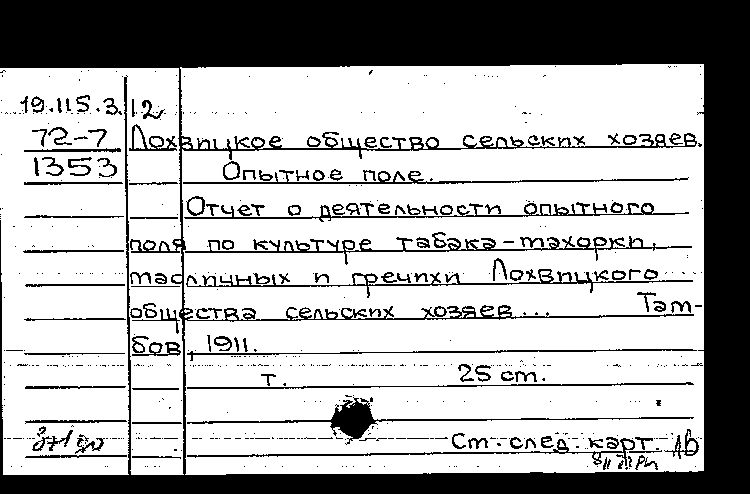 19.115.3.12
72-7 Лохвицкое общество сельских хозяев.
1353 Опытное поле.
Отчет о деятельности опытного
поля по культуре табака-махорки,
масличных и гречихи Лохвицкого
общества сельских хозяев... Там-
бов, 1911.
т. 25 см.
См. след. карт.